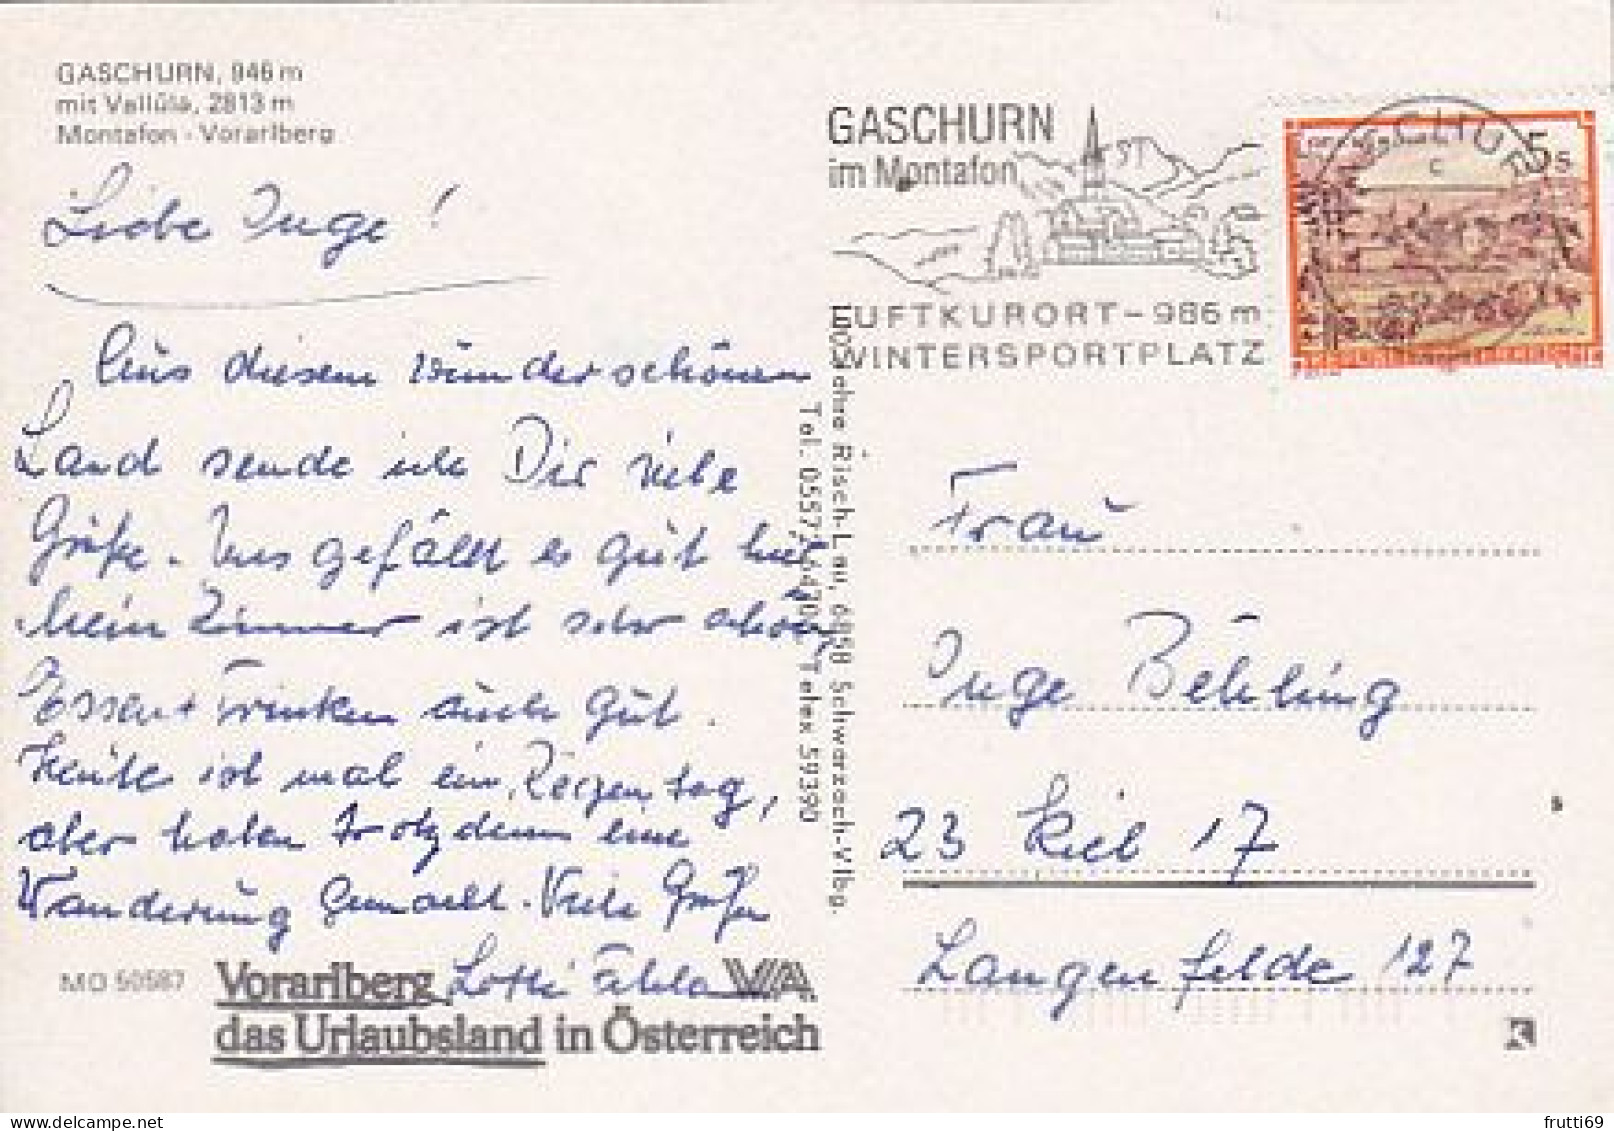 GASCHURN, 946 m
mit Vallüla, 2813 m
Montafon - Vorarlberg
Liebe Inge!
Aus diesem wunderschönen
Land sende ich Dir viele
Grüße. Uns gefällt es gut hier
Mein Zimmer ist sehr schön,
Essen + Trinken auch gut.
Heute ist mal ein Regentag,
aber haben trotzdem eine
Wanderung gemacht. Viele Grüße
Lotti
MO 50587
Vorarlberg VVA
das Urlaubsland in Österreich
Risch-Lau, 6858 Schwarzach-Vlbg.
Tel. 05572/6470, Telex 59390
GASCHURN
im Montafon
LUFTKURORT - 986 m
WINTERSPORTPLATZ
5 S
REPUBLIK ÖSTERREICH
Frau
Inge Behling
23 Kiel 17
Langenfelde 127
frutti69